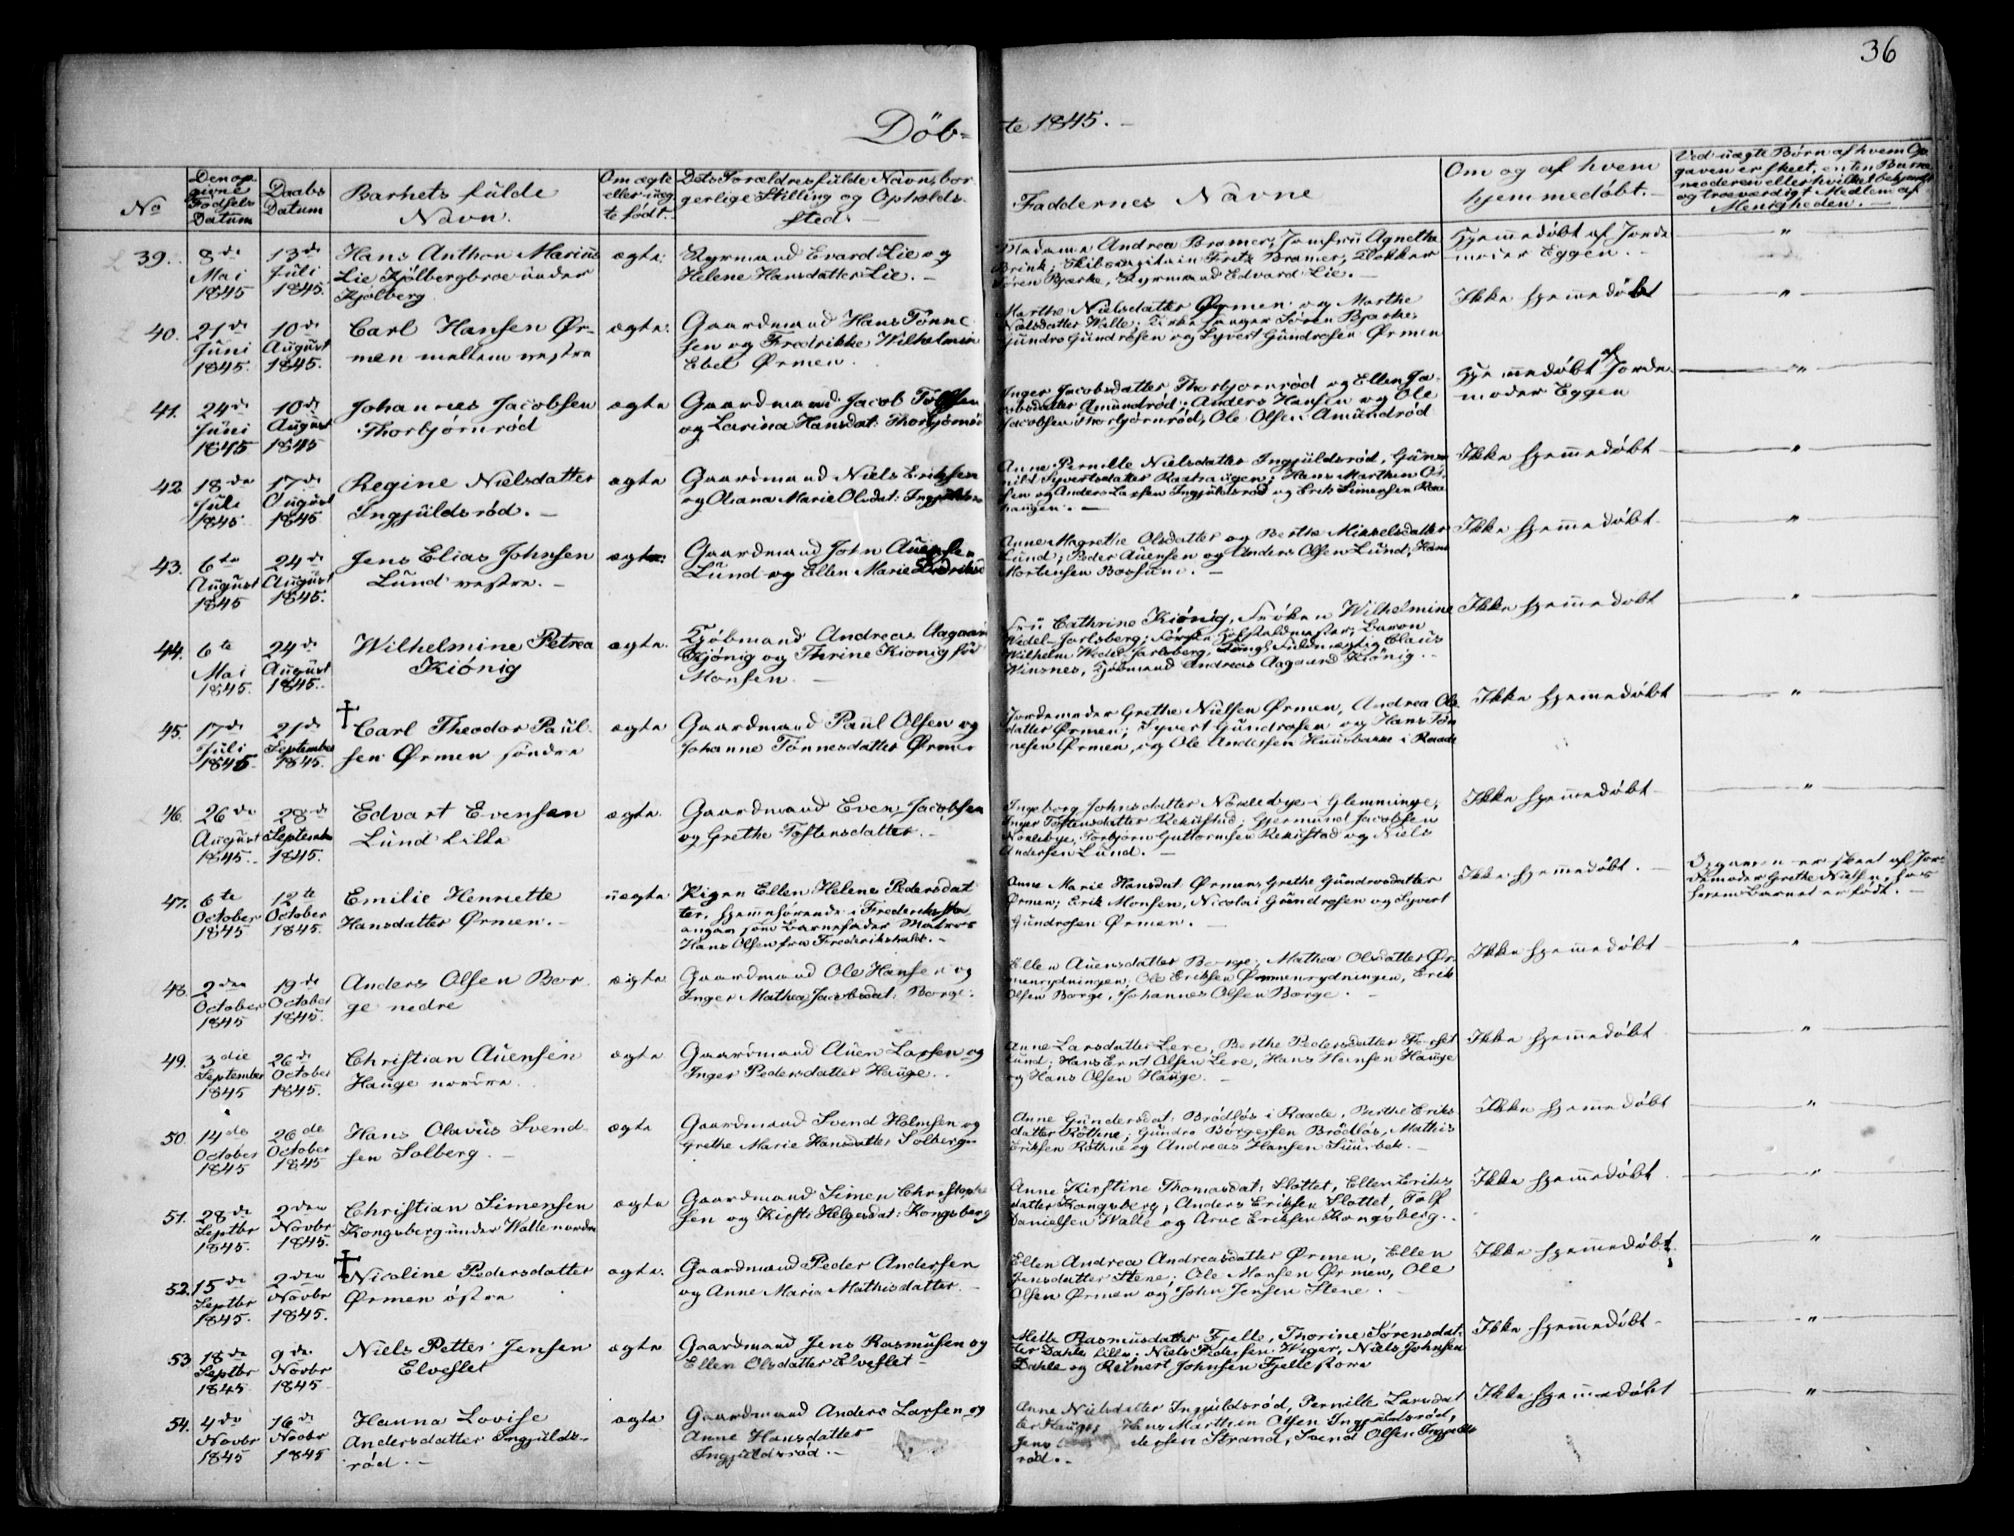 36
Döb-
te 1845.
No
Den op-
givne
Fødsels
Datum
Daabs
Datum
Barnets fulde
Navn.
Om ægte
eller uæg-
te født.
Dets Forældres fulde Navn, bor-
gerlige Stilling og Opholds-
sted.
Faddernes Navne
Om og af hvem
hjemmedøbt.
Ved uægte Børn af hvem Op-
gaven er skeet, enten Barne-
moderen eller hvilket bekjendt
og troeværdigt Medlem af
Menigheden.
39.
8de
Mai
1845
13de
Juli
1845.
Hans Anthon Marius
Lie Kjølbergbroe under
Kjølberg
ægte.
Styrmand Evard Lie og
Helene Hansdatter Lie.
Madame Andrea Bramer, Jomfru Agnethe
Brink; Skibscapitain Fritz Bramer, Klokker
Søren Bjerke, Styrmand Edvard Lie.
Hjemmedøbt af Jorde-
moder Eggen.
"
40.
21de
Juni
1845.
10de
August
1845.
Carl Hansen Ør-
men mellem vestre
ægte.
Gaardmand Hans Tønne-
sen og Fredrikke Wilhelmin
Ebel Ørmen.
Marthe Nielsdatter Ørmen og Marthe
Nielsdatter Walle; Kirkesanger Søren Bjerke,
Gundro Gundrosen og Syvert Gundrosen Ørmen
Ikke hjemmedøbt
"
41.
24de
Juni
1845
10de
August
1845
Johannes Jacobsen
Thorbjørnrød
ægte
Gaardmand Jacob Tolfsen
og Larina Hansdat: Thorbjørnrø
Inger Jacobsdatter Thorbjørnrød og Ellen Ja-
cobsdatter Amundrød; Anders Hansen og Ole
Jacobsen Thorbjørnrød, Ole Olsen Amundrød
Hjemmedøbt af Jorde-
moder Eggen
"
42
18de
Juli
1845
17de
August
1845
Regine Nielsdatter
Ingjuldsrød.
ægte
Gaardmand Niels Eriksen
og Oliana Marie Olsdat: Ingjuldsrø
Anne Pernille Nielsdatter Ingjuldsrød, Gun-
nild Syvertsdatter Rastaugen; Hans Marthin Ol-
sen og Anders Larsen Ingjuldsrød og Erik Simensen Raa-
haugen.
Ikke hjemmedøbt
"
43.
6te
August
1845
24de
August
1845.
Jens Elias Johnsen
Lund vestre.
ægte:
Gaardmand John Auensen
Lund og Ellen Marie Didriks
Anne Magrethe Olsdatter og Berthe Mikkelsdatter
Lund; Peder Auensen og Anders Olsen Lund, Hans
Mortensen Bossum.
Ikke hjemmedøbt
"
44.
6te
Mai
1845.
24de
August
1845.
Wilhelmine Petrea
Kiönig
ægte.
Kjøbmand Andreas Aagaard
Kjönig og Thrine Kiönig fød
Monsen.
Fru Cathrine Kiönig, Frøken Wilhelmine
Wedel-Jarlsberg; Første Hofstaldmester, Baron
Wilhelm Wedel Jarlsberg, Kongl. Fuldmægtig Claus
Winsnes, Kjøbmand Andreas Aagaard Kiönig.
Ikke hjemmedøbt
"
45.
17de
Juli
1845.
21de
September
1845.
†
Carl Theodor Paul-
sen Ørmen söndre
ægte
Gaardmand Paul Olsen og
Johanne Tönnesdatter Ørmen
Jordemoder Grethe Nielsen Ørmen, Andrea Ols-
datter Ørmen; Syvert Gundrosen og Hans Tøn-
nesen Ørmen, og Ole Andersen Huusbarne i Raade
Ikke hjemmedøbt
"
46.
26de
August
1845.
28de
September
1845.
Edvart Evensen
Lund lille
ægte
Gaardmand Even Jacobsen
og Grethe Tostensdatter.
Ingeborg Johnsdatter Nordebye i Glemminge,
Inger Tostensdatter Rekustad; Gjermund Jacobsen
Nordebye, Torbjørn Guttormsen Rekustad og Niels
Andersen Lund.
Ikke hjemmedøbt
"
47.
6te
October
1845
12te
October
1845.
Emilie Henriette
Hansdatter Ørmen.
uægte
Pigen Ellen Helene Pedersdat
ter, hjemmehørende i Frederikssta
angav som Barnefader Matros
Hans Olsen fra Frederikshald.
Anne Marie Hansdat: Ørmen, Grethe Gundrosdatter
Ørmen; Erik Monsen, Nicolai Gundrosen og Syvert
Gundrosen Ørmen.
Ikke hjemmedøbt.
Opgaven er skeet af Jor-
demoder Grethe Nielsen, hos
hvem Barnet er født.
48.
2den
October
1845
19de
October
1845.
Anders Olsen Bor-
ge nedre
ægte
Gaardmand Ole Hansen og
Inger Mathea Jacobsdat: Borge.
Ellen Auensdatter Borge, Mathea Olsdatter Ør-
menrydningen, Ole Eriksen Ørmenrydningen, Erik
Olsen Borge, Johannes Olsen Borge.
Ikke hjemmedøbt
"
49.
3die
September
1845
26de
October
1845.
Christian Auensen
Hauge nordre
ægte
Gaardmand Auen Larsen og
Inger Pedersdatter Hauge.
Anne Larsdatter Lere, Berthe Pedersdatter Torset-
lund; Hans Ernt Olsen Lere, Hans Hansen Hauge
og Hans Olsen Hauge.
Ikke hjemmedøbt
"
50.
14de
October
1845
26de
October
1845
Hans Olavus Svend-
sen Solberg.
ægte
Gaardmand Svend Holmsen og
Grethe Marie Hansdatter Solberg
Anne Gundersdat: Brödløs i Raade, Berthe Eriks-
datter Röthne; Gundro Børgersen Brödløs, Mathis
Eriksen Röthne og Andreas Hansen Suurbek.
Ikke hjemmedøbt
"
51.
28de
Septbr
1845.
2den
Novbr
1845.
Christian Simensen
Kongsberg under Walle nordre
ægte
Gaardmand Simen Christophe
sen og Kirsti Helgesdat: Kongsberg
Anne Kirstine Thomasdat: Slottet, Ellen Eriks-
datter Kongsberg, Anders Eriksen Slottet, Tolf
Danielsen Walle og Arne Eriksen Kongsberg.
Ikke hjemmedøbt
"
52.
15de
Septbr
1845.
2den
Novbr
1845.
†
Nicoline Pedersdatter
Ørmen östre
ægte.
Gaardmand Peder Andersen
og Anne Maria Mathisdatter.
Ellen Andrea Andreasdatter Ørmen, Ellen
Jensdatter Stene; Ole Monsen Ørmen, Ole
Olsen Ørmen og John Jensen Stene.
Ikke hjemmedøbt
"
53
18de
Septbr
1845
9de
Novbr
1845
Niels Petter Jensen
Elveflet
ægte
Gaardmand Jens Rasmusen og
Ellen Olsdatter Elveflet
Mette Rasmusdatter Fjelle, Thorine Sørensdat-
ter Dahle lille; Niels Pedersen Wiger, Niels Johnsen
Dahle og Reinert Johnsen Fjelle store
Ikke hjemmedøbt
"
54.
4de
Novbr
1845
16de
Novbr
1845
Hanna Lovise
Andersdatter Ingjulds-
rød.
ægte
Gaardmand Anders Larsen og
Anne Hansdatter
Ingjuldsrød.
Anne Nielsdatter Ingjuldsrød, Pernille Larsdat-
ter Hauge; Hans Marthin Olsen Ingjuldsrød,
Jens dersen Strand, Svend Olsen Ingjulds-
rød.
Ikke hjemmedøbt
"